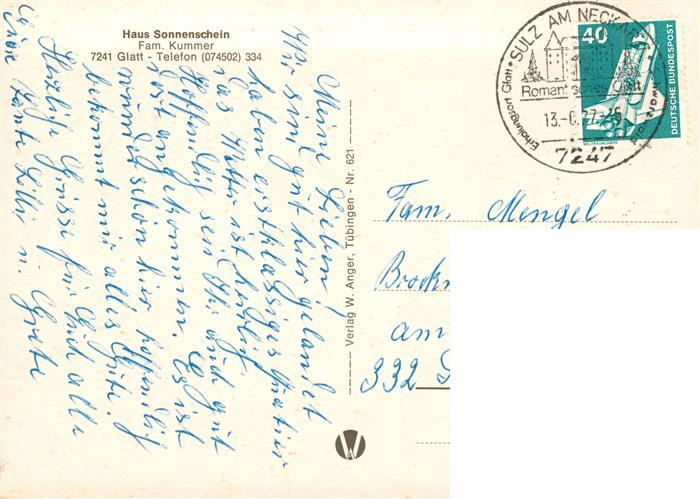 Haus Sonnenschein
Fam. Kummer
7241 Glatt - Telefon (074502) 334
Meine Lieben!
Wir sind gut hier gelandet
haben erstklassiges Quartier
das Wetter ist herrlich
Hoffentlich seid Ihr auch gut
dort angekommen. Es ist
wunderschön hier hoffentlich
bekommt mir alles Gute.
Herzliche Grüsse für Euch alle
Eure Tante u. Grete
Verlag W. Anger, Tübingen - Nr. 621
SULZ AM NECKAR
Erholungsort Glatt
Romantisches Glatt
13.-6.77
7247
40
DEUTSCHE BUNDESPOST
WELTRAUMLABOR
Fam. Mengel
Brock
am
332